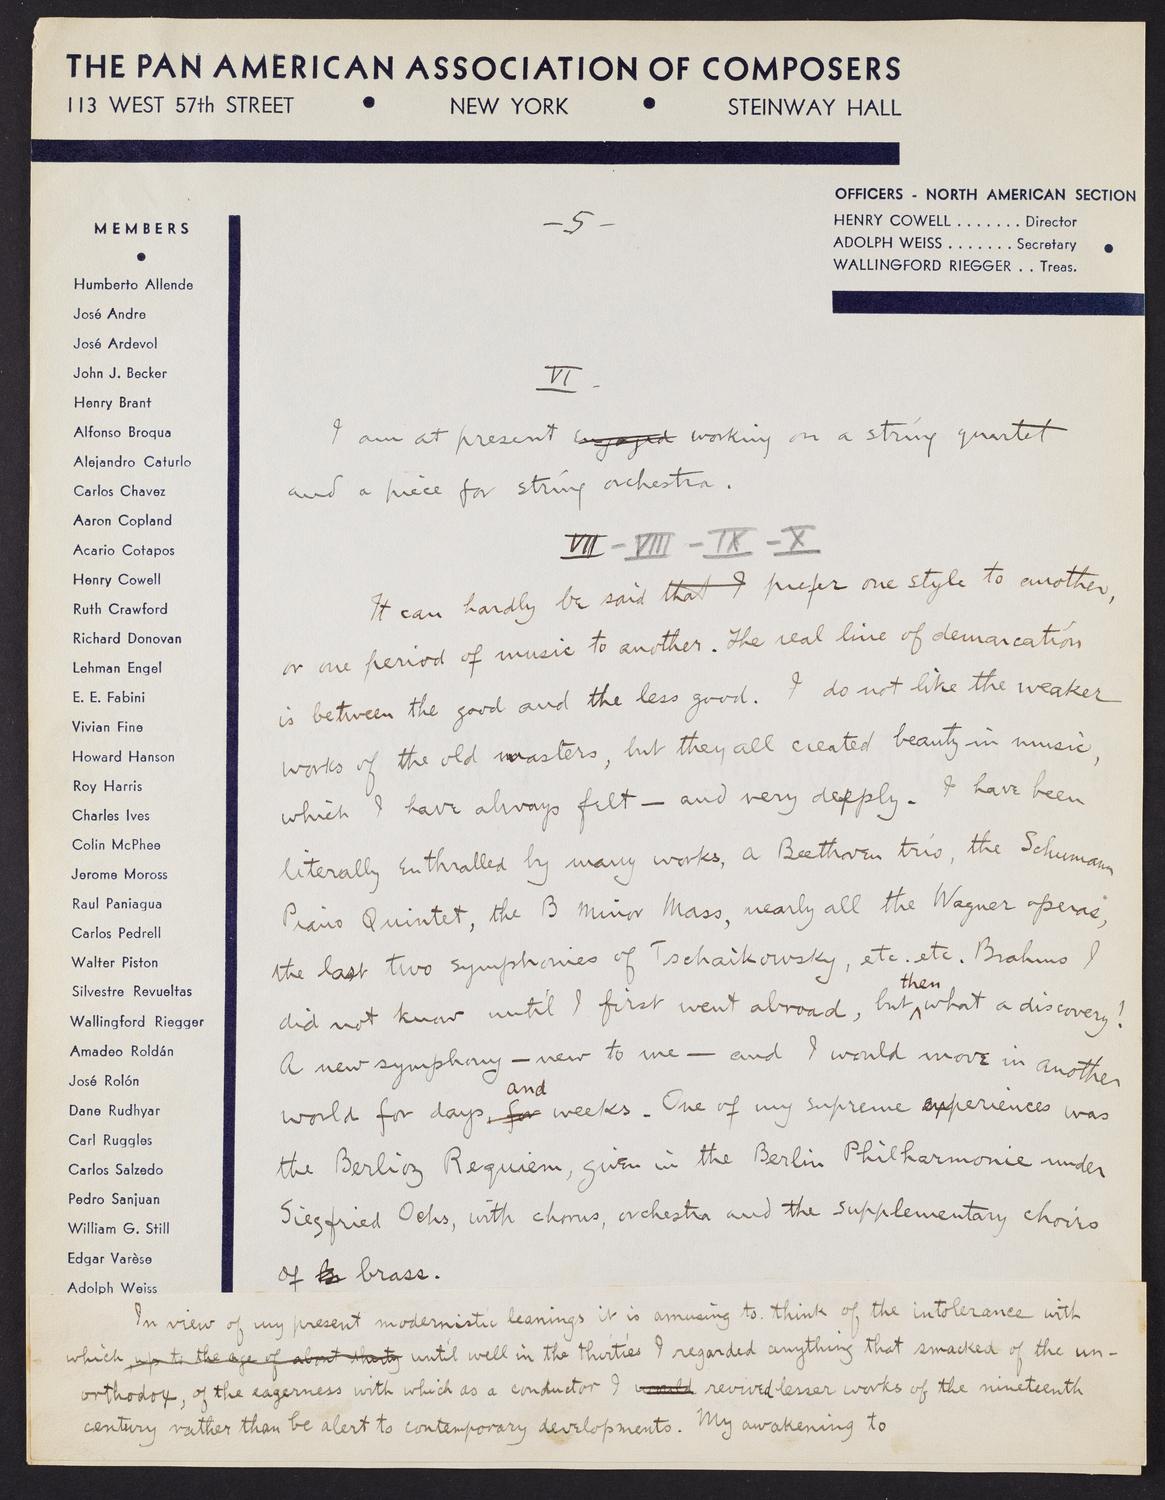 THE PAN AMERICAN ASSOCIATION OF COMPOSERS
113 WEST 57th STREET • NEW YORK • STEINWAY HALL
OFFICERS - NORTH AMERICAN SECTION
HENRY COWELL . . . . . . . Director
ADOLPH WEISS . . . . . . . Secretary •
WALLINGFORD RIEGGER . . Treas.
MEMBERS
•
Humberto Allende
José Andre
José Ardevol
John J. Becker
Henry Brant
Alfonso Broqua
Alejandro Caturlo
Carlos Chavez
Aaron Copland
Acario Cotapos
Henry Cowell
Ruth Crawford
Richard Donovan
Lehman Engel
E. E. Fabini
Vivian Fine
Howard Hanson
Roy Harris
Charles Ives
Colin McPhee
Jerome Moross
Raul Paniagua
Carlos Pedrell
Walter Piston
Silvestre Revueltas
Wallingford Riegger
Amadeo Roldán
José Rolón
Dane Rudhyar
Carl Ruggles
Carlos Salzedo
Pedro Sanjuan
William G. Still
Edgar Varèse
Adolph Weiss
- 5 -
VI -
I am at present engaged working on a string quartet
and a piece for string orchestra.
VII - VIII - IX - X
It can hardly be said that I prefer one style to another,
or one period of music to another. The real line of demarcation
is between the good and the less good. I do not like the weaker
works of the old masters, but they all created beauty in music,
which I have always felt — and very deeply. I have been
literally enthralled by many works, a Beethoven trio, the Schumann
Piano Quintet, the B Minor Mass, nearly all the Wagner operas,
the last two symphonies of Tschaikowsky, etc. etc. Brahms I
did not know until I first went abroad, but then what a discovery!
A new symphony — new to me — and I would move in another
world for days, for and weeks. One of my supreme experiences was
the Berlioz Requiem, given in the Berlin Philharmonie under
Siegfried Ochs, with chorus, orchestra and the supplementary choirs
of brass.
In view of my present modernistic leanings it is amusing to think of the intolerance with
which up to the age of about thirty until well in the thirties I regarded anything that smacked of the un-
orthodox, of the eagerness with which as a conductor I would revived lesser works of the nineteenth
century rather than be alert to contemporary developments. My awakening to